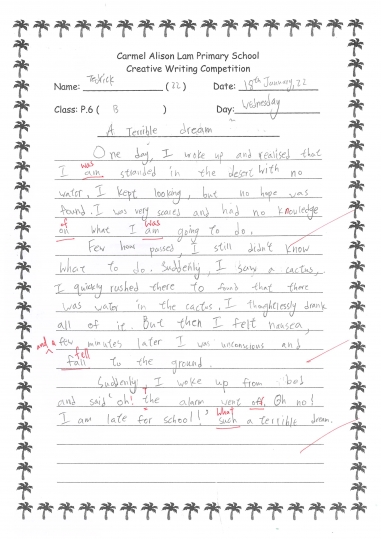 Carmel Alison Lam Primary School
Creative Writing Competition
Name: (22) Date: 18th January, 22
Class: P.6 ( B ) Day: Wednesday
A Terrible dream
One day, I woke up and realised that
was
I am stranded in the desert with no
water. I kept looking, but no hope was
found. I was very scares and had no knowledge
of was
on what I am going to do.
Few hour passed, I still didn't know
what to do. Suddenly, I saw a cactus,
I quickly rushed there to found that there
was water in the cactus. I thoughtlessly drank
all of it. But then I felt nausea,
and a few minutes later I was unconscious and
fell
fall to the ground.
Suddenly I woke up from bed
and said 'oh! the alarm went off. Oh no!
What
I am late for school!' such a terrible dream.